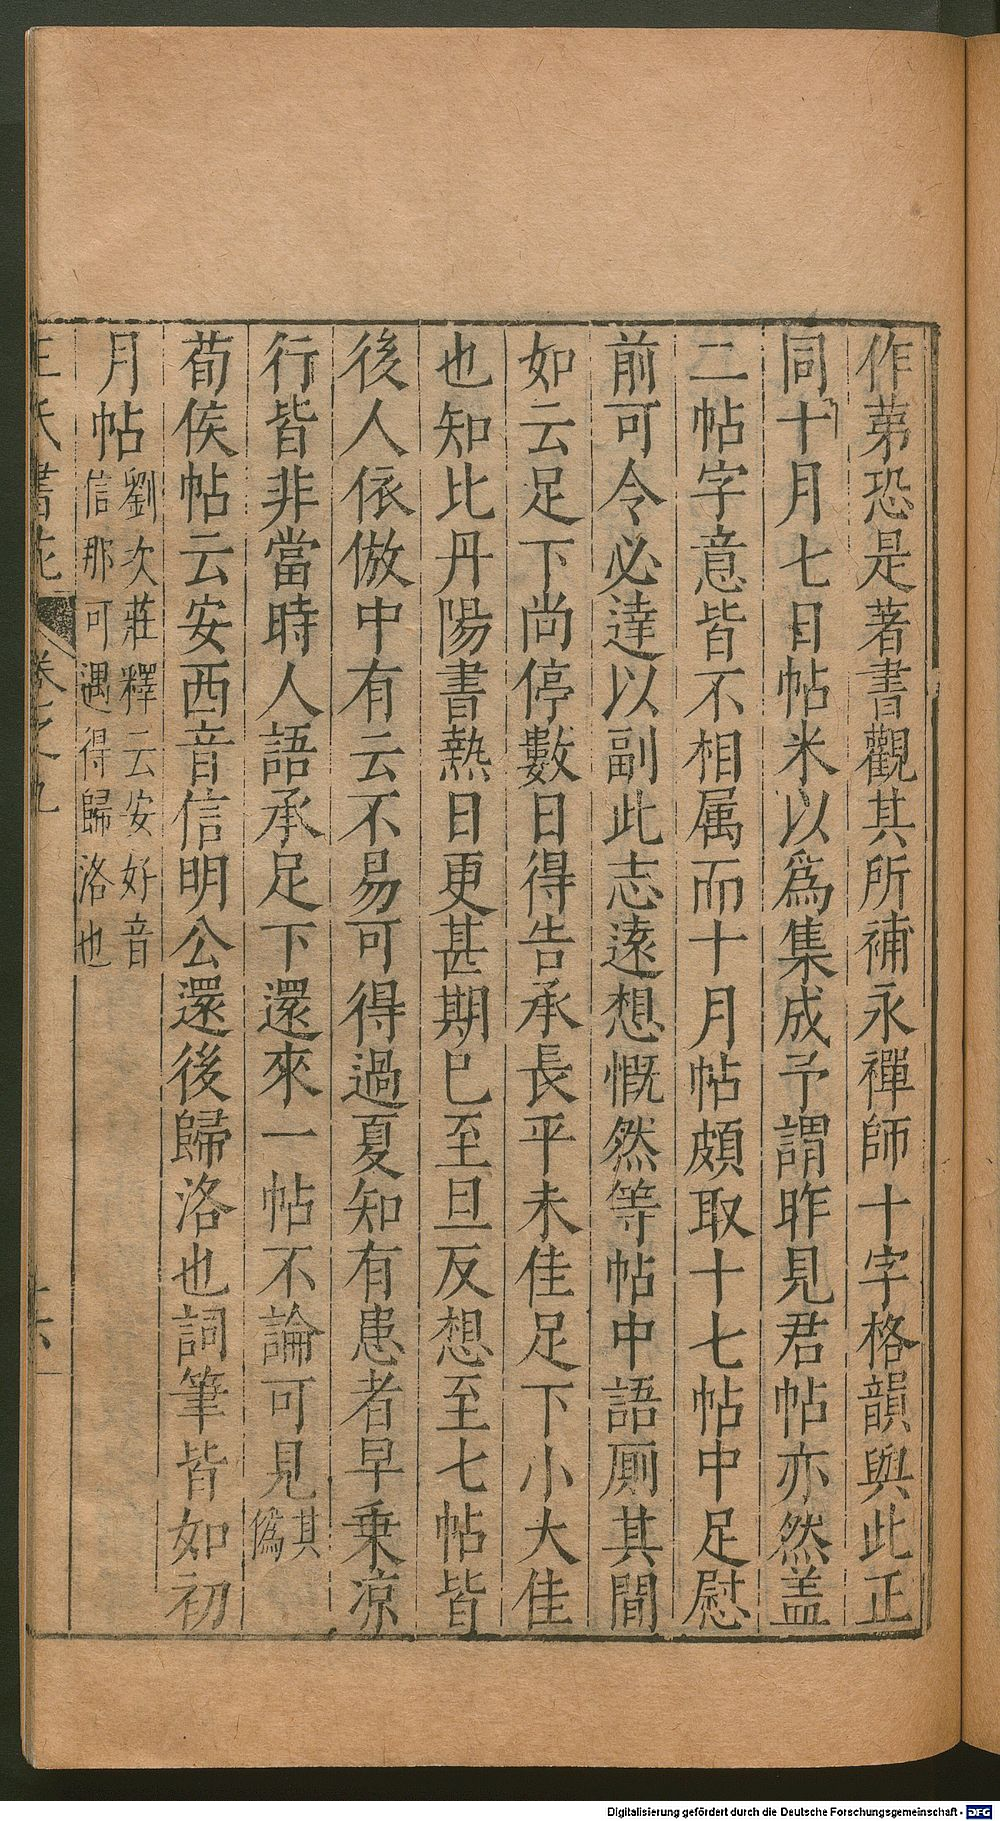 作苐恐是著書觀其所補永禪師十字格韻與此正
同十月七日帖米以爲集成予謂昨見君帖亦然盖
二帖字意皆不相属而十月帖頗取十七帖中足慰
前可令必達以副此志遠想慨然等帖中語厠其間
如云足下尚停數日得告承長平未佳足下小大佳
也知比丹陽書熱日更甚期已至旦反想至七帖皆
後人依倣中有云不易可得過夏知有患者早乗凉
行皆非當時人語承足下還來一帖不論可見其
偽
荀侯帖云安西音信明公還後歸洛也詞筆皆如初
月帖劉次莊釋云安好音
信那可遇得歸洛也
王氏書苑 卷之九
Digitalisierung gefördert durch die Deutsche Forschungsgemeinschaft - DFG